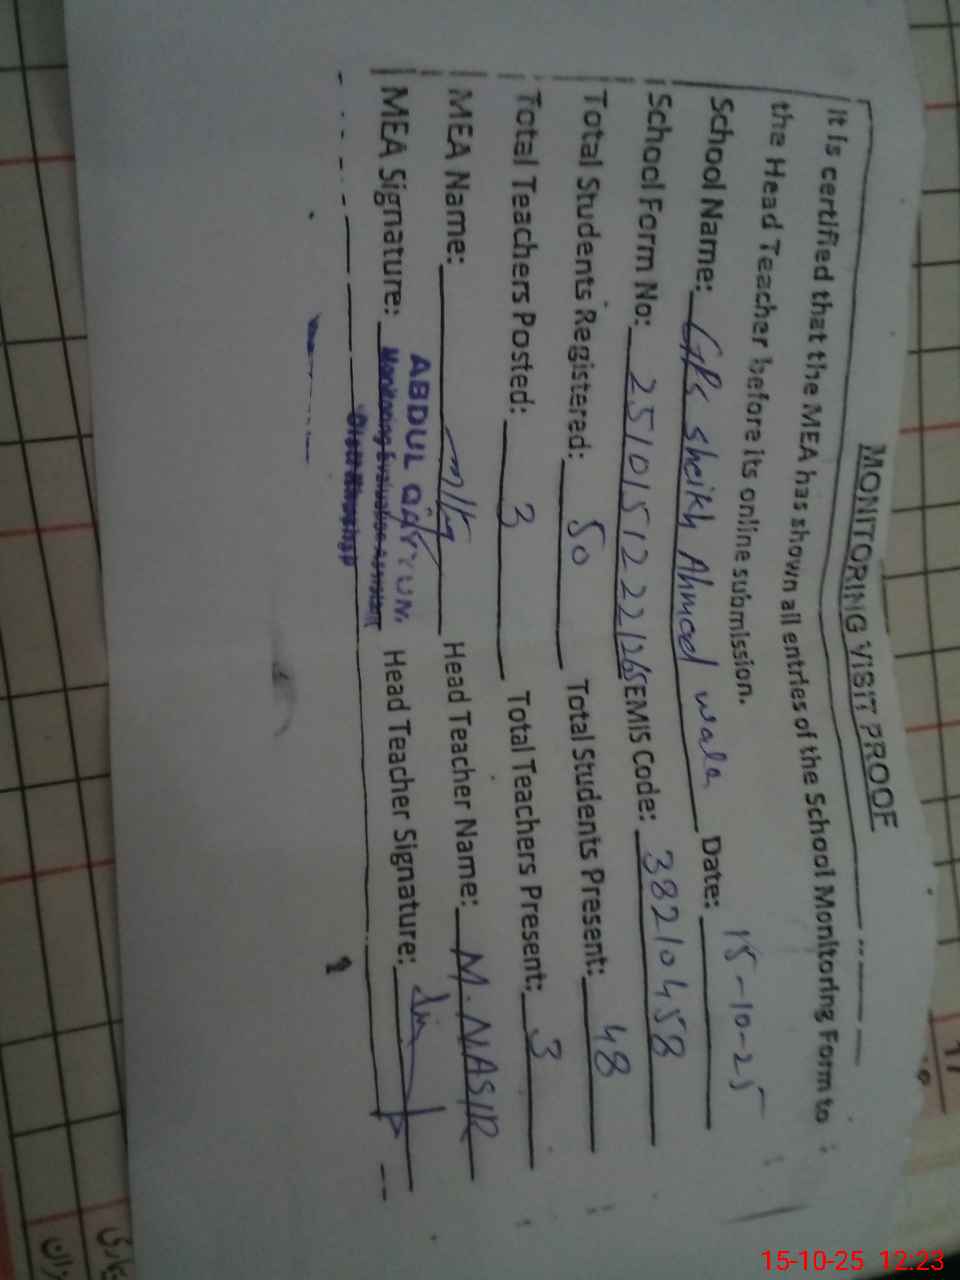 MONITORING VISIT PROOF
It is certified that the MEA has shown all entries of the School Monitoring Form to
the Head Teacher before its online submission.
School Name: GPS Sheikh Ahmed wala Date: 15-10-25
School Form No: 2510151222126 EMIS Code: 38210458
Total Students Registered: 50 Total Students Present: 48
Total Teachers Posted: 3 Total Teachers Present: 3
MEA Name: Head Teacher Name: M. NASIR
MEA Signature: Head Teacher Signature:
ABDUL QAYYUM
Monitoring Evaluation Assistant
15-10-25 12:23